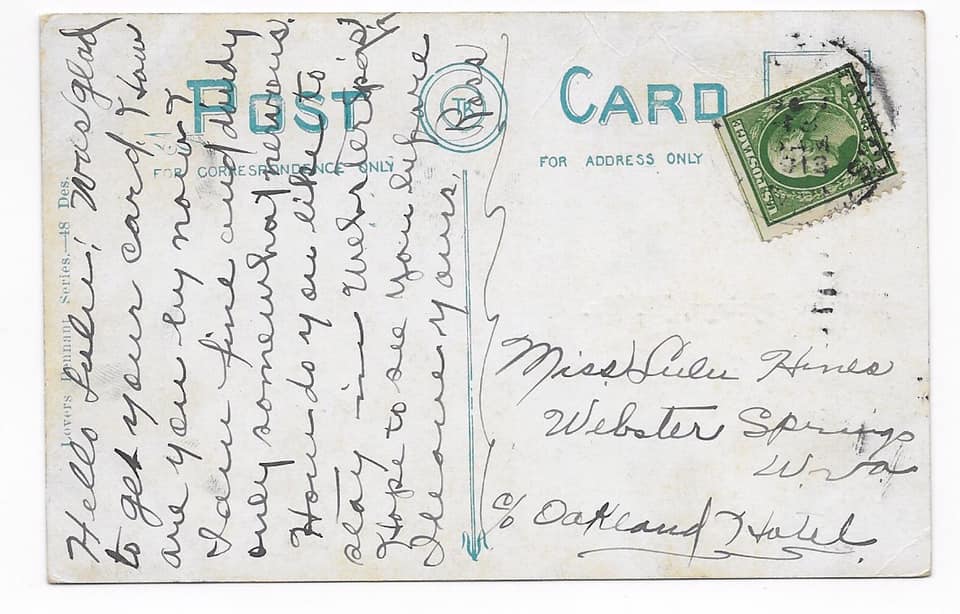 POST CARD
FOR CORRESPONDENCE ONLY
FOR ADDRESS ONLY
Lovers Pennant Series.—48 Des.
Hello Lulu: Was glad
to get your card. How
are you by now?
I am fine and dandy
only somewhat nervous.
How do you like to
stay in Webster Sp's?
Hope to see you before
I leave yours,
U.S. POSTAGE
Miss Lulu Hines
Webster Springs
W. Va
c/o Oakland Hotel.